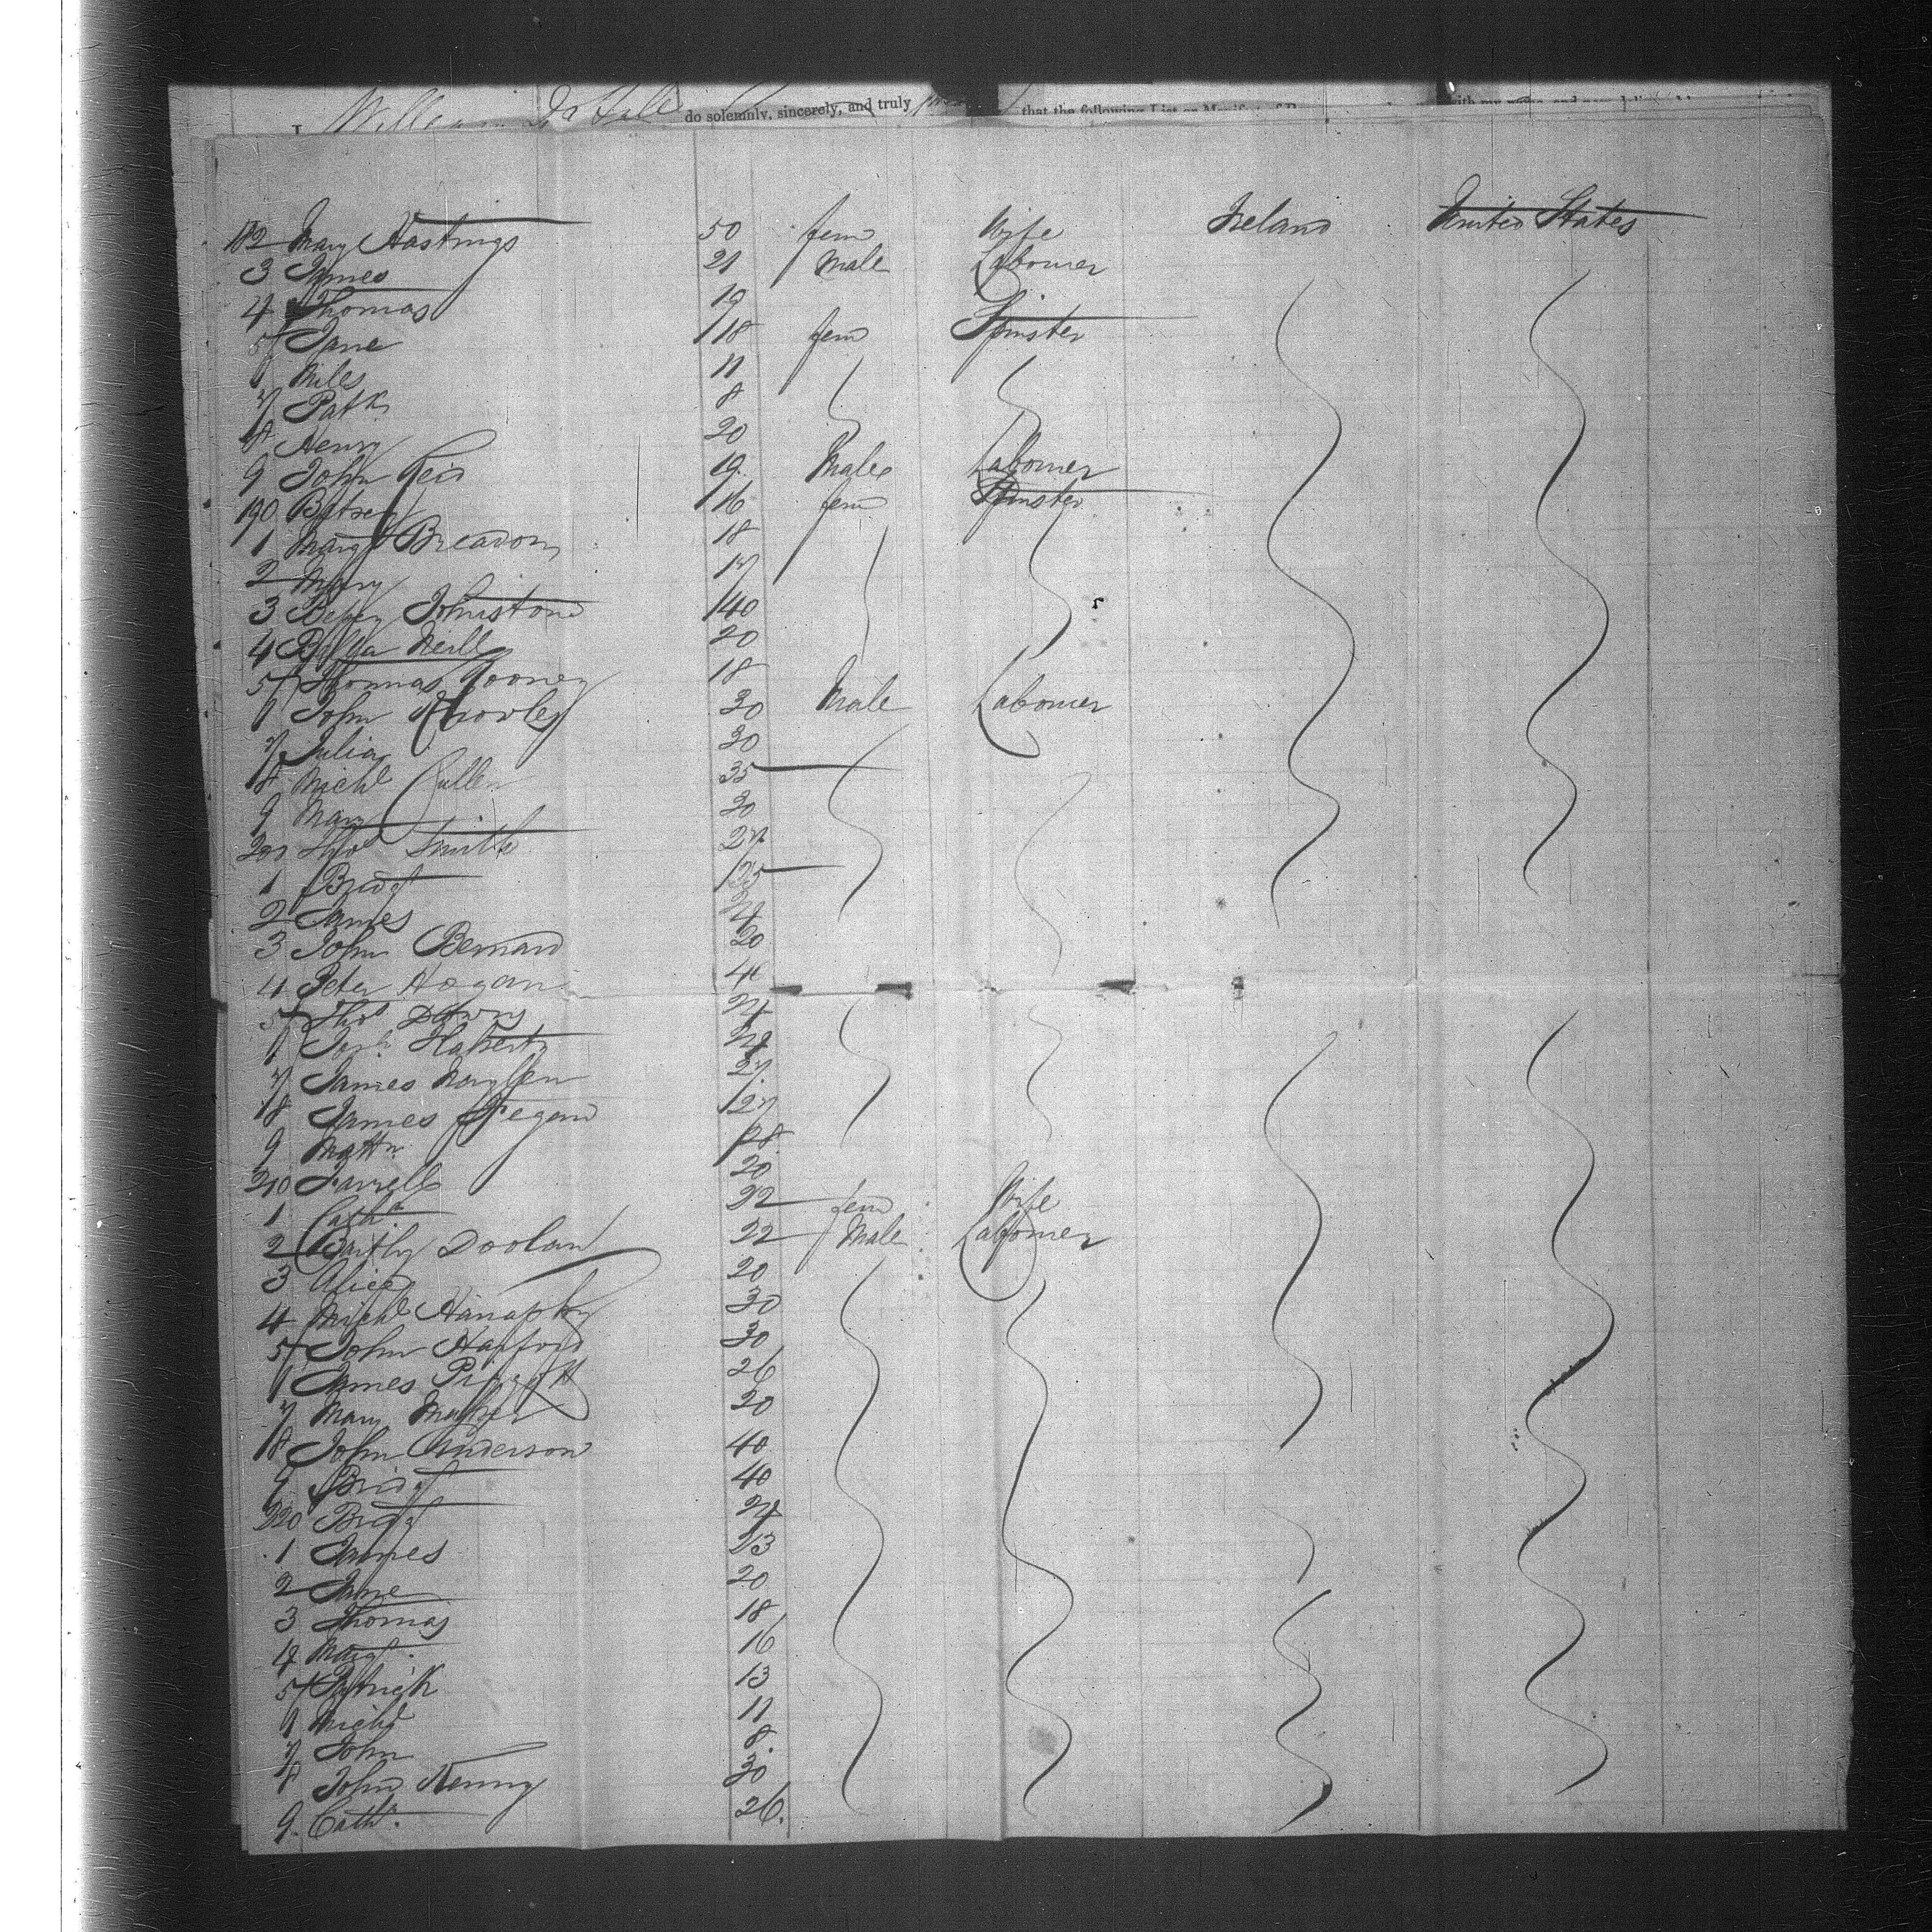 I William do solemnly, sincerely, and truly that the following List or Manifest of
182 Mary Hastings 50 fem Wife Ireland United States
3 James 21 Male Labourer
4 Thomas 19
5 Jane 18 fem Spinster
6 Miles 11
7 Patk 8
8 Henry 20
9 John Reid 19 Male Labourer
190 Betsey 16 fem Spinster
1 Margt Breadon 18
2 Mary 17
3 Betsey Johnston 40
4 Neill 20
5 Thomas Rooney 18
6 John Crowley 30 Male Labourer
7 Julia 30
8 Michl Cullen 35
9 Mary 30
200 Thos Smith 27
1 Bridgt 25
2 James
3 John Bernard 20
4 Peter Hogan 40
5 Thos Downs
6 Flaherty
7 James 27
8 James Fegan 27
9 Mattw 28
210 Farrell 20
1 Cathe 22 fem Wife
2 Barthy Doolan 22 Male Labourer
3 Alice 20
4 Michl 30
5 John Harford 30
6 James 26
7 Mary Maher 20
8 John Anderson 40
9 Bridgt 40
220 Bridgt
1 James 23
2 Jane 20
3 Thomas 18
4 Margt 16
5 Patrick 13
6 Michl 11
7 John 8
8 John Kenny 30
9 Cathe 26